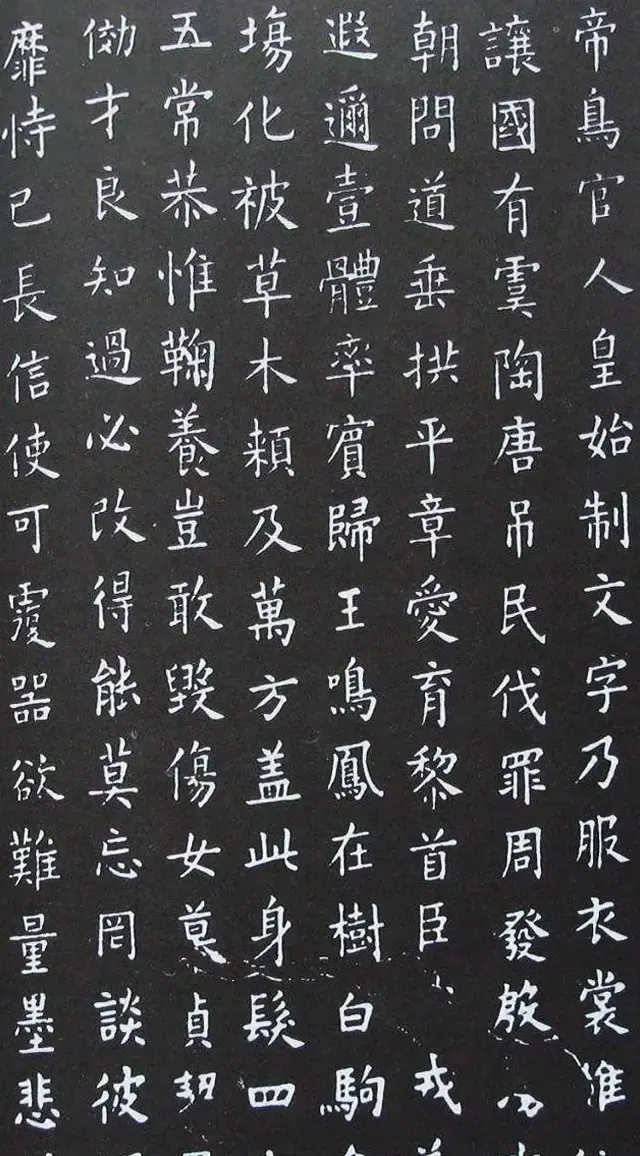 帝鳥官人皇始制文字乃服衣裳推
讓國有虞陶唐吊民伐罪周發殷
朝問道垂拱平章愛育黎首臣戎
遐邇壹體率賓歸王鳴鳳在樹白駒
場化被草木賴及萬方盖此身髮四
五常恭惟鞠養豈敢毀傷女慕貞
効才良知過必改得能莫忘罔談彼
靡恃己長信使可覆器欲難量墨悲